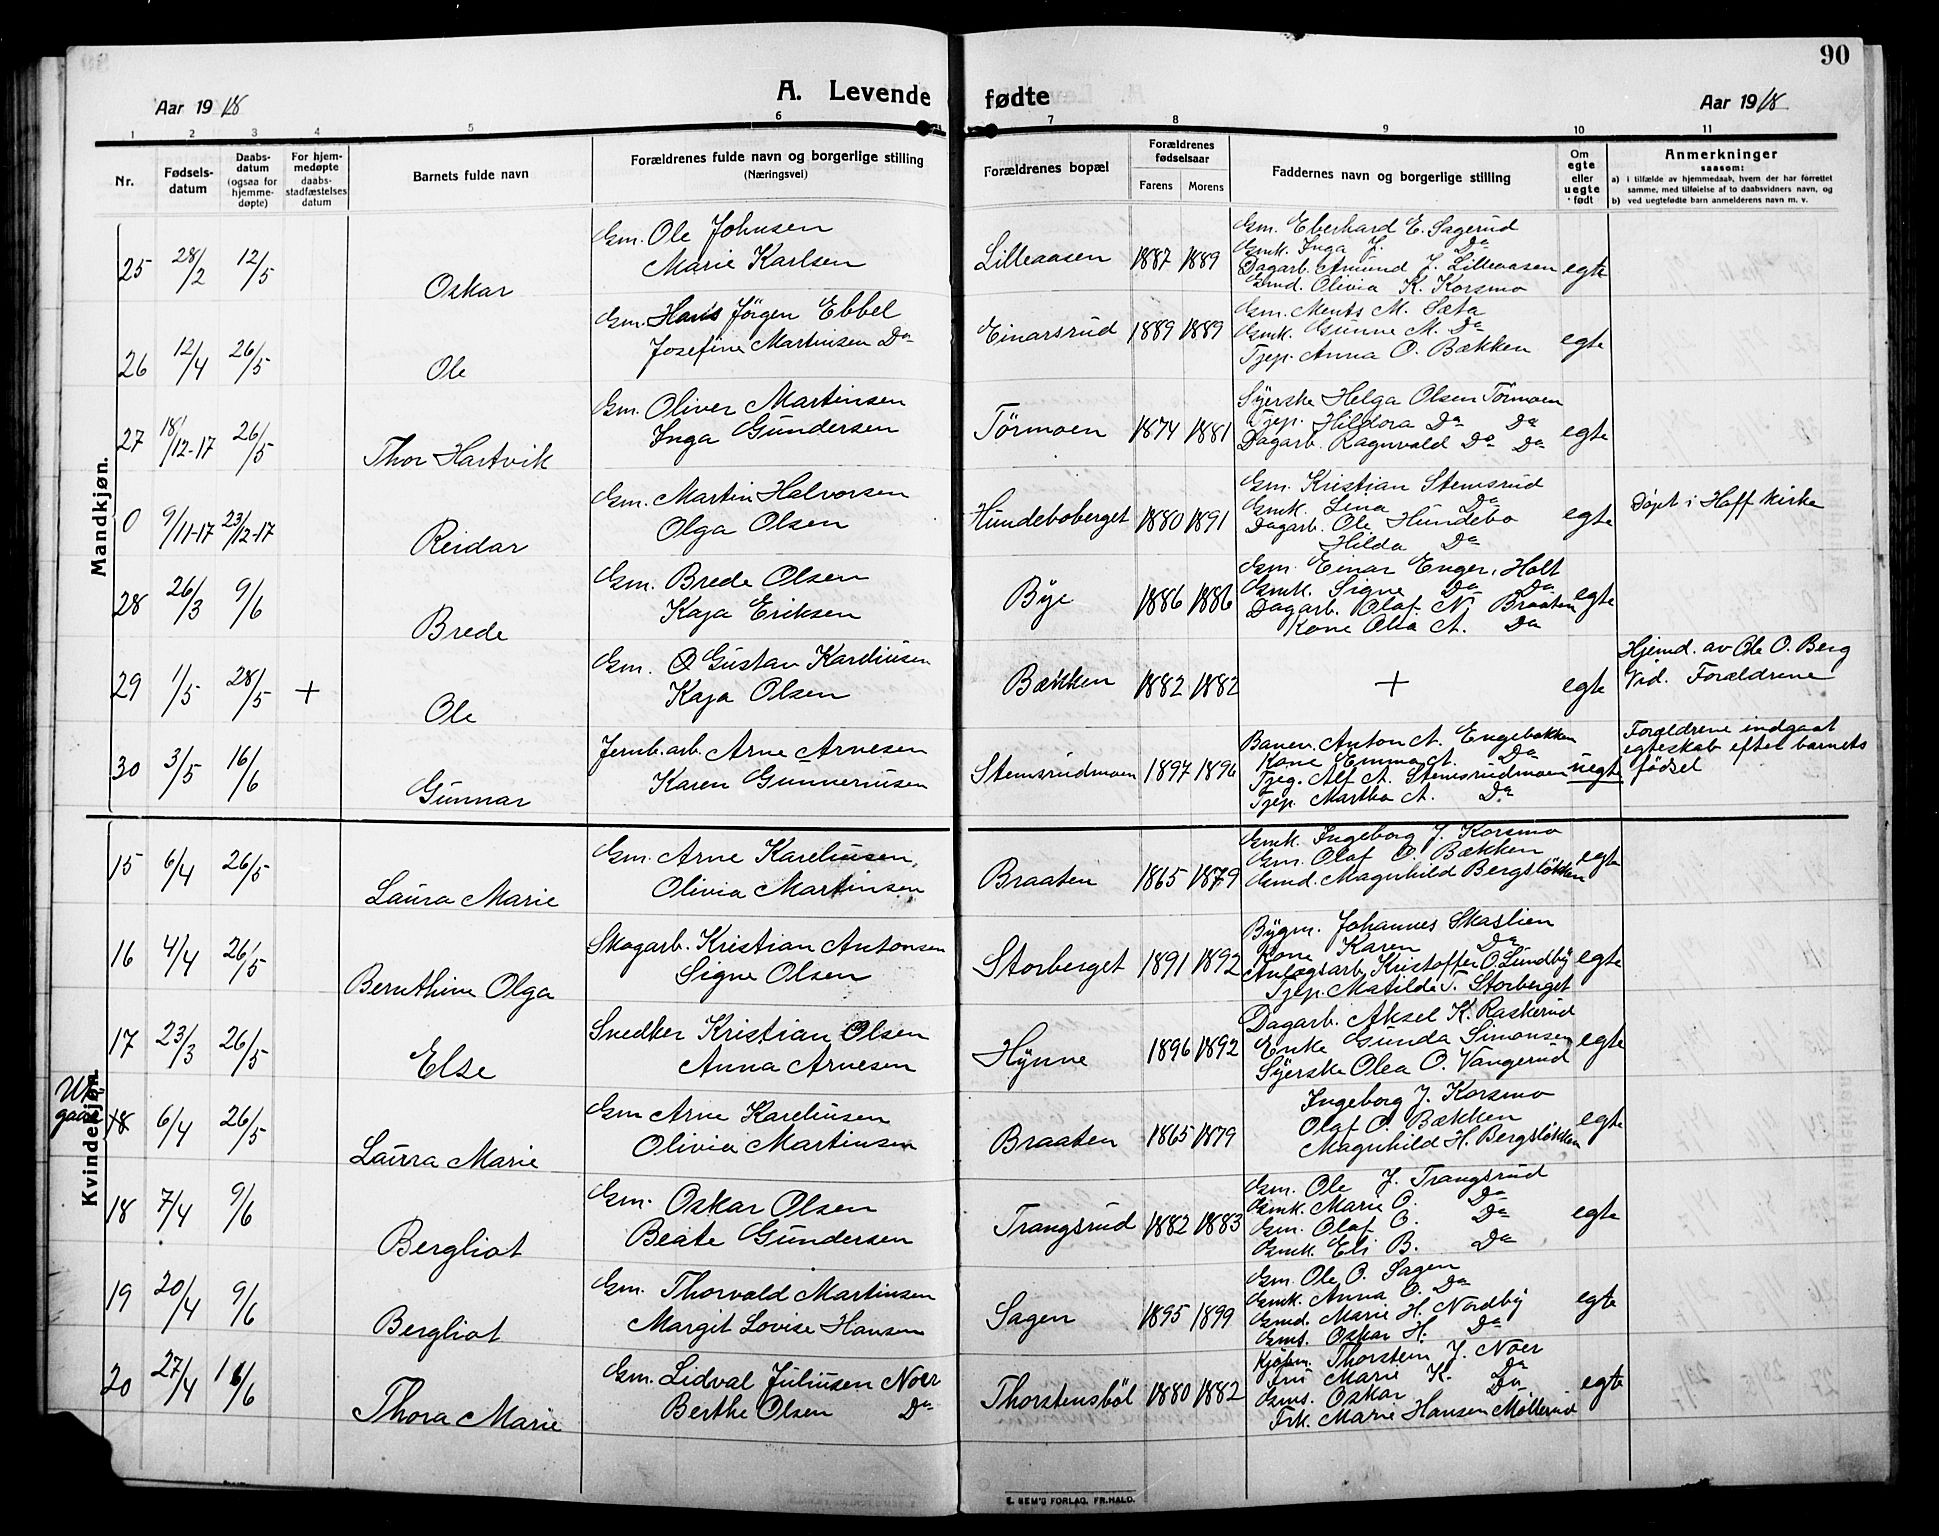 90
Aar 1918
A. Levende
fødte
Aar 1918
1 2 3 4 5 6 7 8 9 10 11
Nr.
Fødsels-
datum
Daabs-
datum
(ogsaa for
hjemme-
døpte)
For hjem-
medøpte
daabs-
stadfæstelses
datum
Barnets fulde navn
Forældrenes fulde navn og borgerlige stilling
(Næringsvei)
Forældrenes bopæl
Forældrenes
fødselsaar
Farens Morens
Faddernes navn og borgerlige stilling
Om
egte
eller
uegte
født
Anmerkninger
saasom:
a) i tilfælde av hjemmedaab, hvem der har forrettet
samme, med tilføielse af to daabsvidners navn, og
b) ved uegtefødte barn anmelderens navn m. v.
Mandkjøn.
25 28/2 12/5 Oskar
Gm. Ole Johnsen
Marie Karlsen
Lilleaasen 1887 1889
Gm. Eberhard E. Sagerud
Gmk. Inga J. Do
Dagarb. Amund J. Lilleaasen
Gmd. Olivia K. Korsmo
egte
26 12/4 26/5 Ole
Gm. Hans Jörgen Ebbel
Josefine Martinsen Do
Einarsrud 1889 1889
Gm. Ments M. Sæta
Gmk. Gunne M. Do
Tjep. Anna O. Bækken
egte
27 18/12-17 26/5 Thor Hartvik
Gm. Oliver Martinsen
Inga Gundersen
Törmoen 1874 1881
Syerske Helga Olsen Törmoen
Tjep. Hildora Do Do
Dagarb. Ragnvald Do Do
egte
0 9/11-17 23/12-17 Reidar
Gm. Martin Halvorsen
Olga Olsen
Hundeboberget 1880 1891
Gm. Kristian Stemsrud
Gmk. Lina Do
Dagarb. Ole Hundebo
Hilda Do
egte
Döpt i Hoff kirke
28 26/3 9/6 Brede
Gm. Brede Olsen
Kaja Eriksen
Bye 1886 1886
Gm. Einar Enger, Holt
Gmk. Signe Do Do
Dagarb. Olaf N. Braaten
Kone Olia A. Do
egte
29 1/5 28/5 + Ole
Gm. O Gustav Kareliusen
Kaja Olsen
Bækken 1882 1882
+
egte
Hjemd. av Ole O. Berg
Vid. Forældrene
30 3/5 16/6 Gunnar
Jernb.arb. Arne Arnesen
Karen Gunneriusen
Stemsrudmoen 1897 1896
Banev. Anton A. Engebakken
Kone Emma A. Do
Tjeg. Alf A. Stemsrudmoen
Tjep. Martha A. Do
uegte
Forældrene indgaat
egteskab efter barnets
födsel
Kvindekjøn.
15 6/4 26/5 Laura Marie
Gm. Arne Kareliusen,
Olivia Martinsen
Braaten 1865 1879
Gmk. Ingeborg J. Korsmo
Gm. Olaf O. Bækken
Gmd. Magnhild Bergslökken
egte
16 4/4 26/5 Bernthine Olga
Skogarb. Kristian Antonsen
Signe Olsen
Storberget 1891 1892
Bygm. Johannes Skaslien
Kone Karen Do
Anlægsarb. Kristoffer O. Lundby
Tjep. Matilde T. Storberget
egte
17 23/3 26/5 Else
Snedker Kristian Olsen
Anna Arnesen
Hynne 1896 1892
Dagarb. Aksel K. Raskerud
Enke Gunda Simonsen
Syerske Olea O. Vangerud
egte
Ut-
gaar 18 6/4 26/5 Laura Marie
Gm Arne Kareliusen
Olivia Martinsen
Braaten 1865 1879
Ingeborg J. Korsmo
Olaf O. Bækken
Magnhild H. Bergslökken
egte
18 7/4 9/6 Bergliot
Gm. Oskar Olsen
Beate Gundersen
Trangsrud 1882 1883
Gm. Ole J. Trangsrud
Gmk. Marie O. Do
Gm. Olaf B. Do
Gmk. Eli B. Do
egte
19 20/4 9/6 Bergliot
Gm. Thorvald Martinsen
Margit Lovise Hansen
Sagen 1895 1899
Gm. Ole O. Sagen
Gmk. Anna O. Do
Gmd. Marie H. Nordby
Gms. Oskar H. Do
egte
20 27/4 16/6 Thora Marie
Gm. Lidval Juliusen Noer
Berthe Olsen Do
Thorstensböl 1880 1882
Kjöbm. Thorstein J. Noer
Fru Marie K. Do
Gms. Oskar Do
Frk. Marie Hansen Möllerud
egte
E. SEM'S FORLAG, FR.HALD.